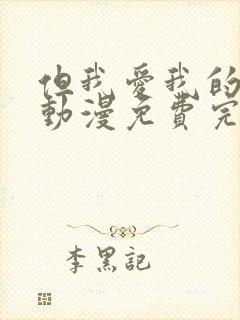 但我愛我的
動漫免費完
李黑記